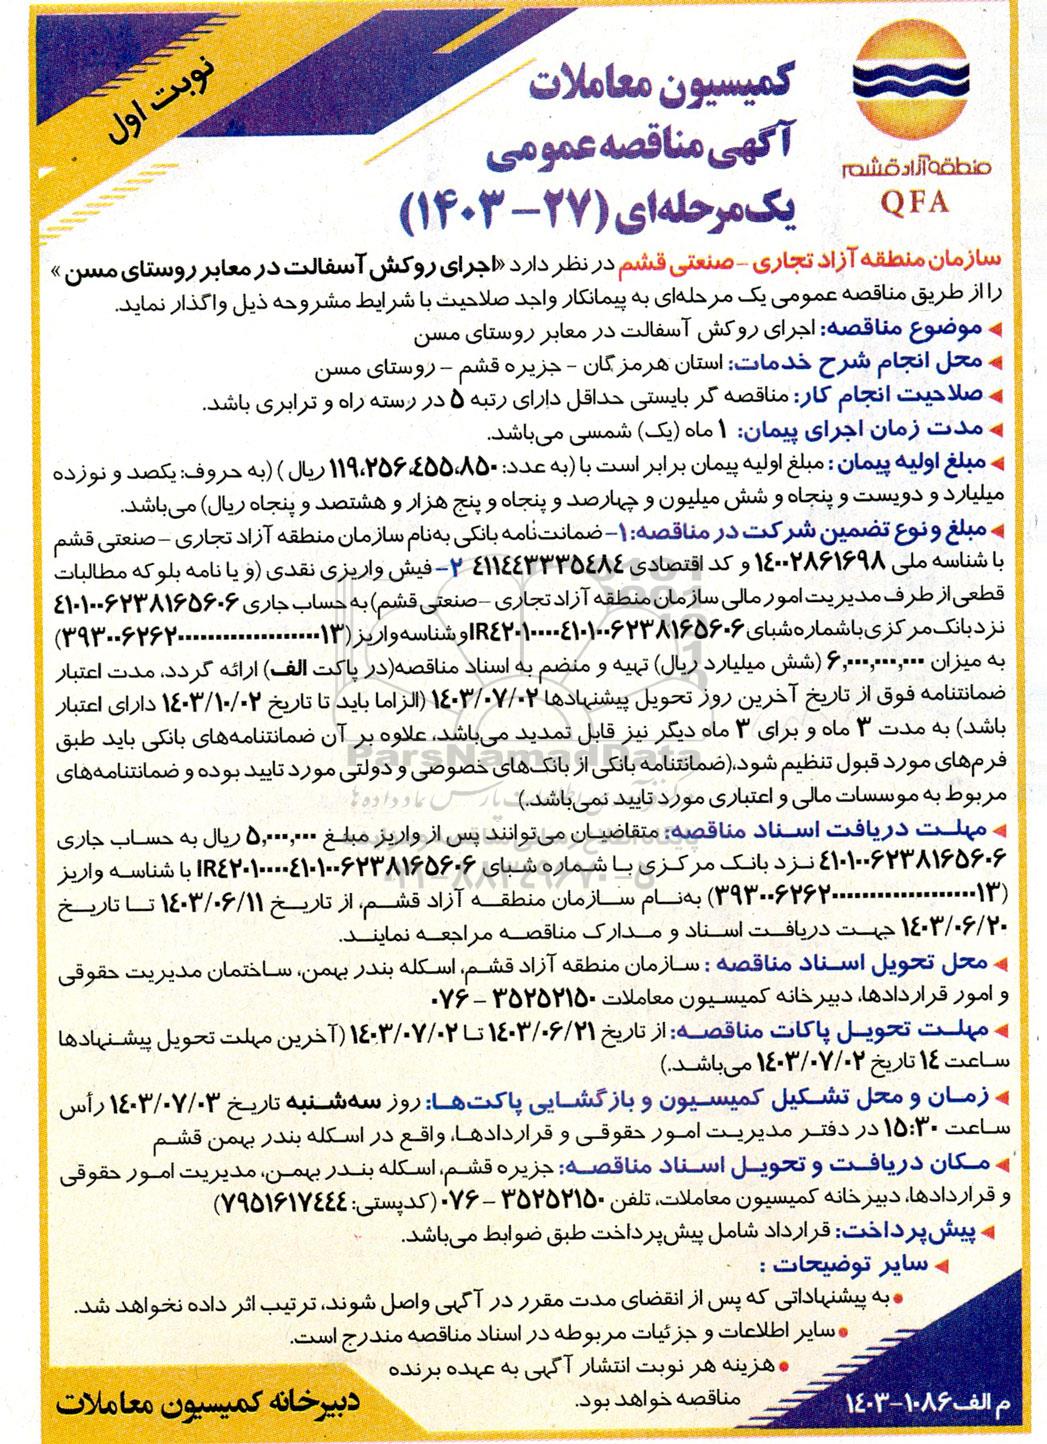 نوبت اول
منطقه آزاد قشم
QFA
کمیسیون معاملات
آگهی مناقصه عمومی
یک مرحله‌ای (۲۷- ۱۴۰۳)
سازمان منطقه آزاد تجاری - صنعتی قشم در نظر دارد «اجرای روکش آسفالت در معابر روستای مسن»
را از طریق مناقصه عمومی یک مرحله‌ای به پیمانکار واجد صلاحیت با شرایط مشروحه ذیل واگذار نماید.
موضوع مناقصه: اجرای روکش آسفالت در معابر روستای مسن
محل انجام شرح خدمات: استان هرمزگان - جزیره قشم - روستای مسن
صلاحیت انجام کار: مناقصه گر بایستی حداقل دارای رتبه ۵ در رسته راه و ترابری باشد.
مدت زمان اجرای پیمان: ۱ ماه (یک) شمسی می‌باشد.
مبلغ اولیه پیمان: مبلغ اولیه پیمان برابر است با (به عدد: ۱۱۹،۲۵۶،۴۵۵،۸۵۰ ریال) (به حروف: یکصد و نوزده
میلیارد و دویست و پنجاه و شش میلیون و چهارصد و پنجاه و پنج هزار و هشتصد و پنجاه ریال) می‌باشد.
مبلغ و نوع تضمین شرکت در مناقصه: ۱- ضمانت‌نامه بانکی به‌نام سازمان منطقه آزاد تجاری - صنعتی قشم
با شناسه ملی ۱۴۰۰۲۸۶۱۶۹۸ و کد اقتصادی ۴۱۱۴۴۳۳۳۵۴۸۴ ۲- فیش واریزی نقدی (و یا نامه بلوکه مطالبات
قطعی از طرف مدیریت امور مالی سازمان منطقه آزاد تجاری - صنعتی قشم) به حساب جاری ۴۱۰۱۰۰۶۲۳۸۱۶۵۶۰۶
نزد بانک مرکزی با شماره شبای IR۴۲۰۱۰۰۰۰۴۱۰۱۰۰۶۲۳۸۱۶۵۶۰۶ و شناسه واریز
به میزان ۶,۰۰۰,۰۰۰,۰۰۰ (شش میلیارد ریال) تهیه و منضم به اسناد مناقصه (در پاکت الف) ارائه گردد، مدت اعتبار
ضمانتنامه فوق از تاریخ آخرین روز تحویل پیشنهادها ۱۴۰۳/۰۷/۰۲ (الزاما باید تا تاریخ ۱۴۰۳/۱۰/۰۲ دارای اعتبار
باشد) به مدت ۳ ماه و برای ۳ ماه دیگر نیز قابل تمدید می‌باشد، علاوه بر آن ضمانتنامه‌های بانکی باید طبق
فرم‌های مورد قبول تنظیم شود،(ضمانتنامه بانکی از بانک‌های خصوصی و دولتی مورد تایید بوده و ضمانتنامه‌های
مربوط به موسسات مالی و اعتباری مورد تایید نمی‌باشد.)
مهلت دریافت اسناد مناقصه: متقاضیان می‌توانند پس از واریز مبلغ ۵,۰۰۰,۰۰۰ ریال به حساب جاری
۴۱۰۱۰۰۶۲۳۸۱۶۵۶۰۶ نزد بانک مرکزی با شماره شبای IR۴۲۰۱۰۰۰۰۴۱۰۱۰۰۶۲۳۸۱۶۵۶۰۶ با شناسه واریز
به‌نام سازمان منطقه آزاد قشم، از تاریخ ۱۴۰۳/۰۶/۱۱ تا تاریخ
۱۴۰۳/۰۶/۲۰ جهت دریافت اسناد و مدارک مناقصه مراجعه نمایند.
محل تحویل اسناد مناقصه: سازمان منطقه آزاد قشم، اسکله بندر بهمن، ساختمان مدیریت حقوقی
و امور قراردادها، دبیرخانه کمیسیون معاملات ۳۵۲۵۲۱۵۰ - ۰۷۶
مهلت تحویل پاکات مناقصه: از تاریخ ۱۴۰۳/۰۶/۲۱ تا ۱۴۰۳/۰۷/۰۲ (آخرین مهلت تحویل پیشنهادها
ساعت ۱۴ تاریخ ۱۴۰۳/۰۷/۰۲ می‌باشد.)
زمان و محل تشکیل کمیسیون و بازگشایی پاکت‌ها: روز سه‌شنبه تاریخ ۱۴۰۳/۰۷/۰۳ رأس
ساعت ۱۵:۳۰ در دفتر مدیریت امور حقوقی و قراردادها، واقع در اسکله بندر بهمن قشم
مکان دریافت و تحویل اسناد مناقصه: جزیره قشم، اسکله بندر بهمن، مدیریت امور حقوقی
و قراردادها، دبیرخانه کمیسیون معاملات، تلفن ۳۵۲۵۲۱۵۰ - ۰۷۶ (کدپستی: ۷۹۵۱۶۱۷۴۴۴)
پیش‌پرداخت: قرارداد شامل پیش‌پرداخت طبق ضوابط می‌باشد.
سایر توضیحات:
• به پیشنهاداتی که پس از انقضای مدت مقرر در آگهی واصل شوند، ترتیب اثر داده نخواهد شد.
• سایر اطلاعات و جزئیات مربوطه در اسناد مناقصه مندرج است.
• هزینه هر نوبت انتشار آگهی به عهده برنده
مناقصه خواهد بود.
دبیرخانه کمیسیون معاملات
م الف ۱۰۸۶-۱۴۰۳
ParsNamadData